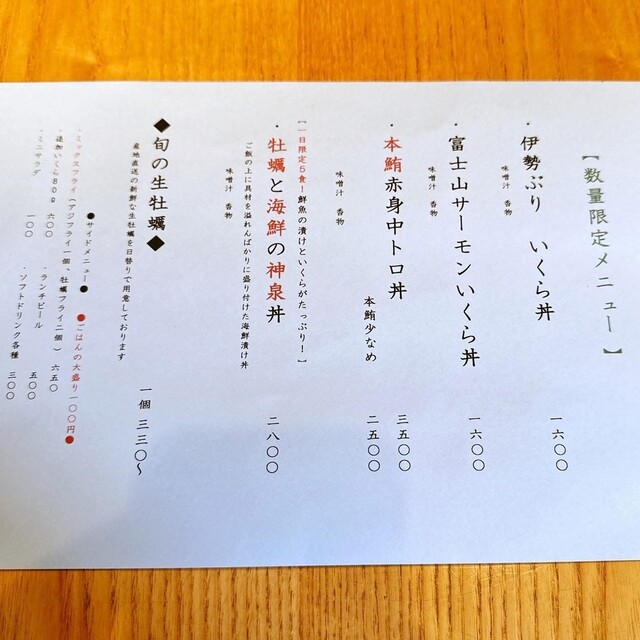 【数量限定メニュー】
・伊勢ぶり いくら丼 一六〇〇
味噌汁 香物
・富士山サーモンいくら丼 一六〇〇
味噌汁 香物
・本鮪赤身中トロ丼 三五〇〇
本鮪少なめ 二五〇〇
味噌汁 香物
【一日限定5食!鮮魚の漬けといくらがたっぷり!】
・牡蠣と海鮮の神泉丼 二八〇〇
ご飯の上に具材を溢れんばかりに盛り付けた海鮮漬け丼
味噌汁 香物
◆旬の生牡蠣◆ 一個 三三〇〜
産地直送の新鮮な生牡蠣を日替りで用意しております
●サイドメニュー● ●ごはんの大盛り一〇〇円●
・ミックスフライ(アジフライ一個、牡蠣フライ二個) 六五〇
・追加いくら80g 六〇〇 ・ランチビール 五〇〇
・ミニサラダ 一〇〇 ・ソフトドリンク各種 三〇〇